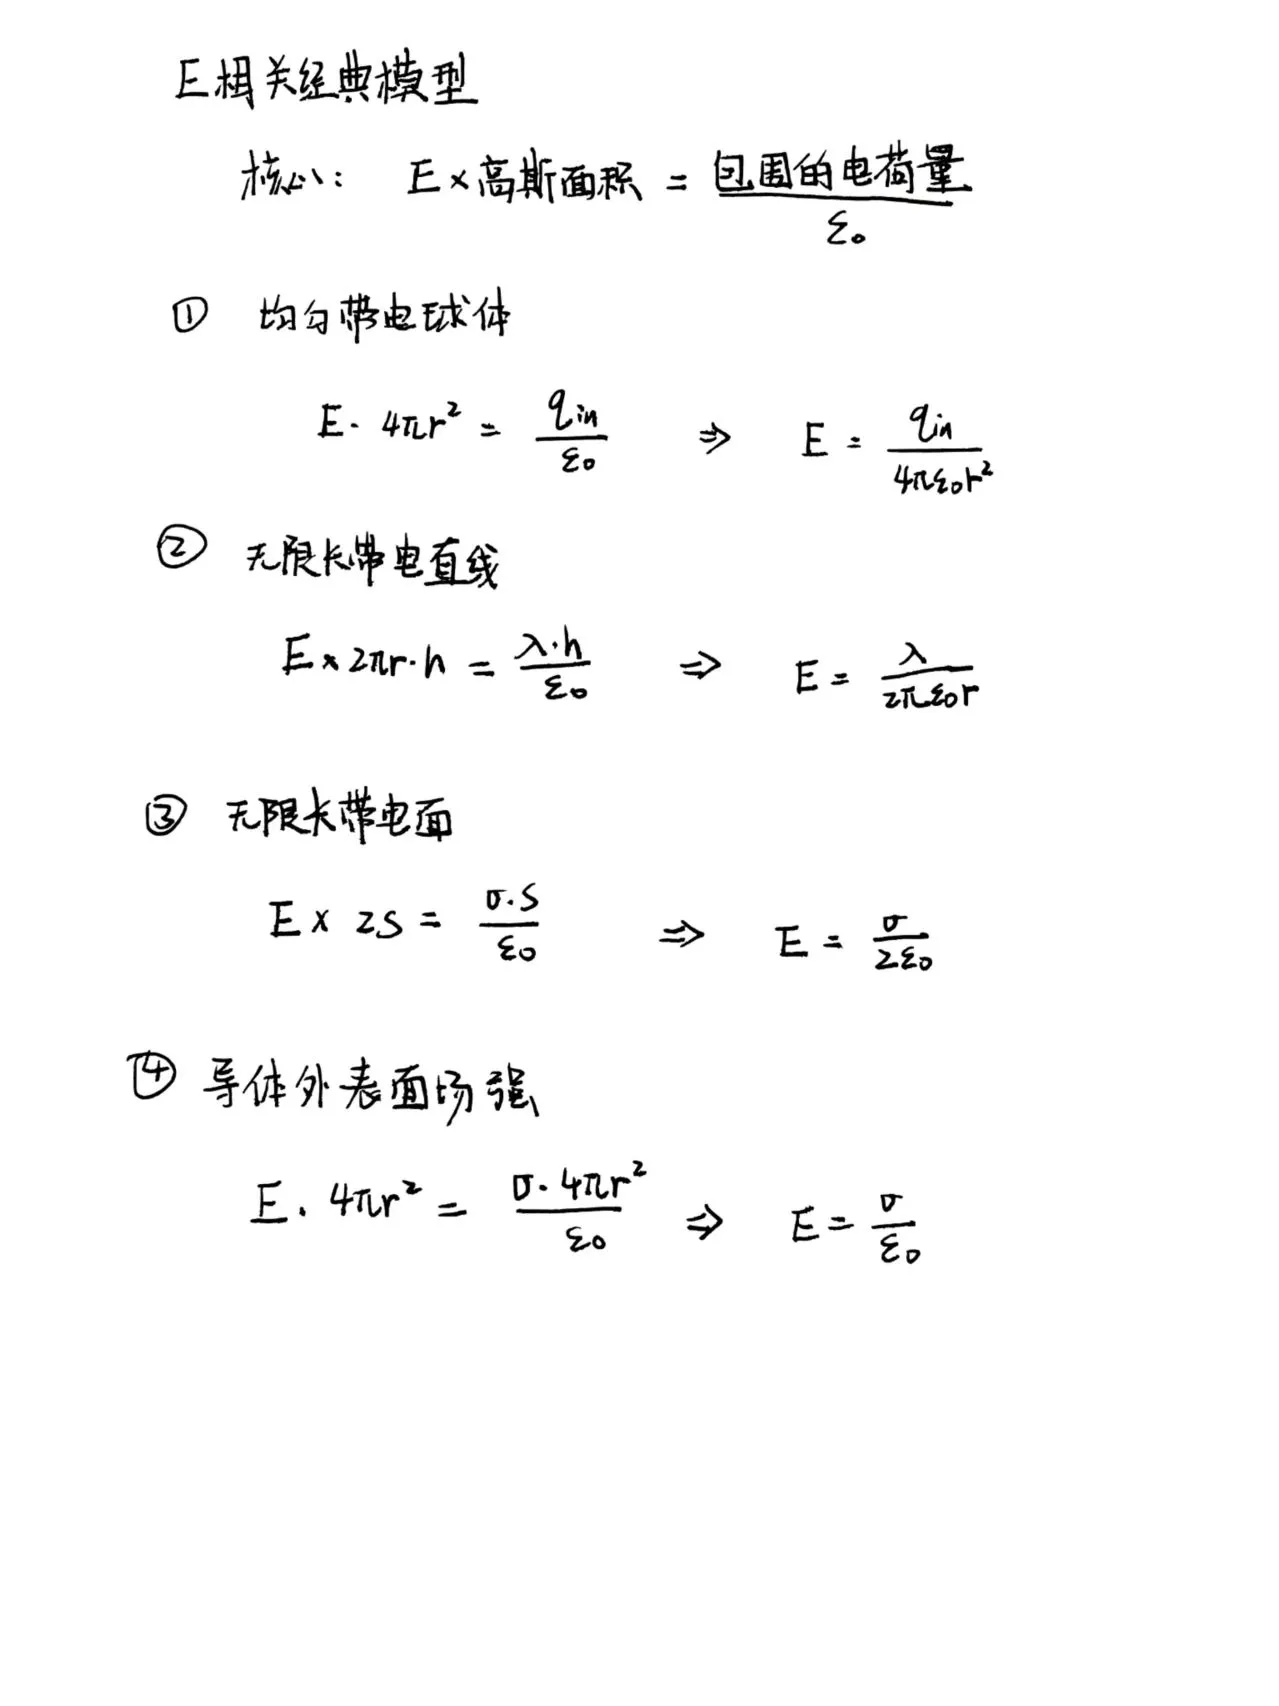 E相关经典模型
核心: E×高斯面积 = 包围的电荷量/ε₀
① 均匀带电球体
E· 4πr² = qin/ε₀ ⇒ E = qin/4πε₀r²
② 无限长带电直线
E×2πr·h = λ·h/ε₀ ⇒ E = λ/2πε₀r
③ 无限长带电面
E × 2S = σ·S/ε₀ ⇒ E = σ/2ε₀
④ 导体外表面场强
E· 4πr² = σ·4πr²/ε₀ ⇒ E = σ/ε₀